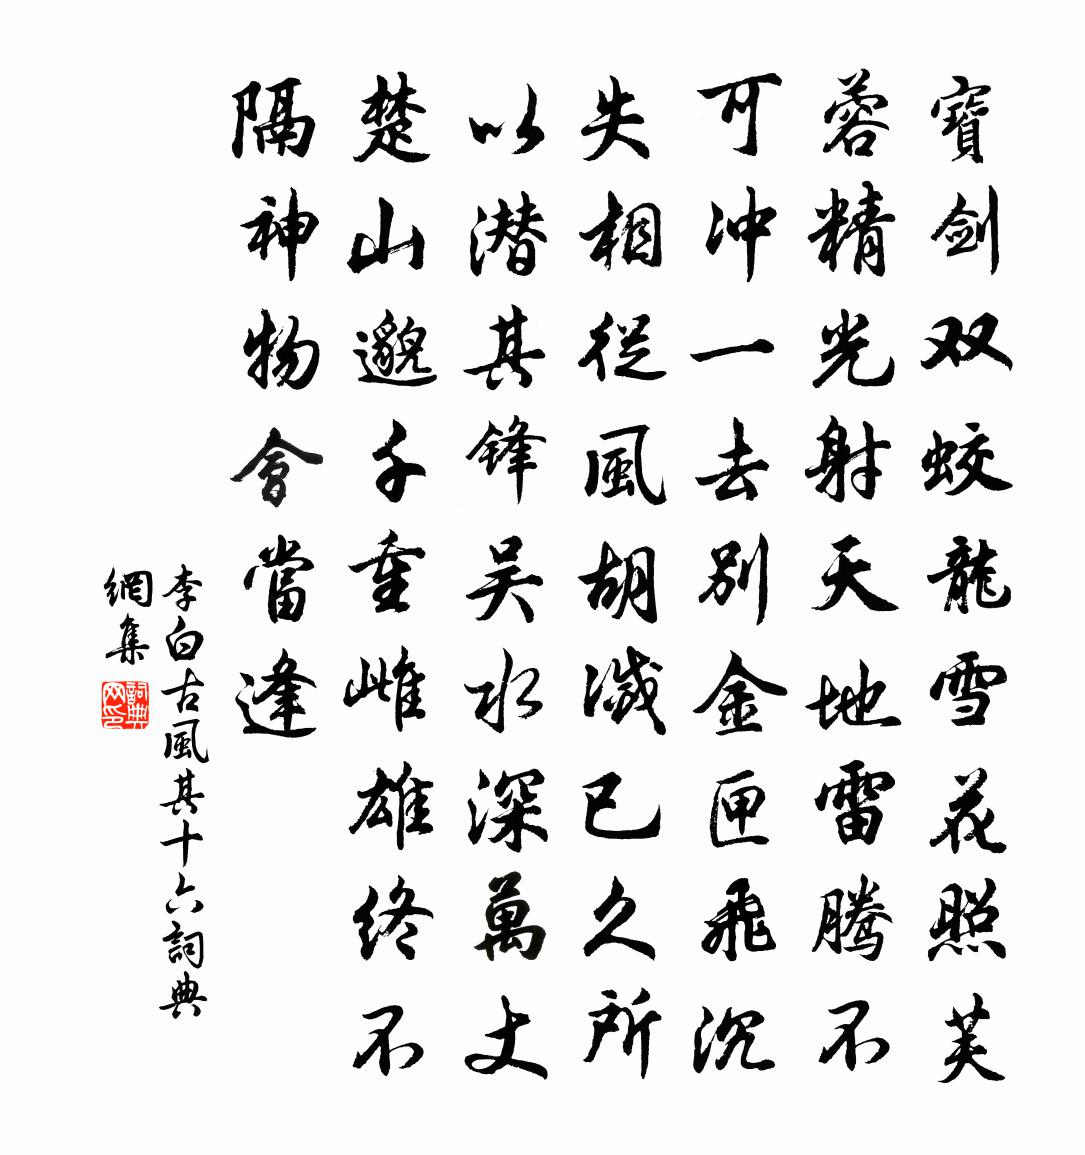 寶剑双蛟龍雪花照芙
蓉精光射天地雷腾不
可冲一去別金匣飛沉
失相從風胡滅已久所
以潜其锋吴水深萬丈
楚山邈千重雌雄终不
隔神物會當逢
李白古風其十六詞典
網集
詞典
网印